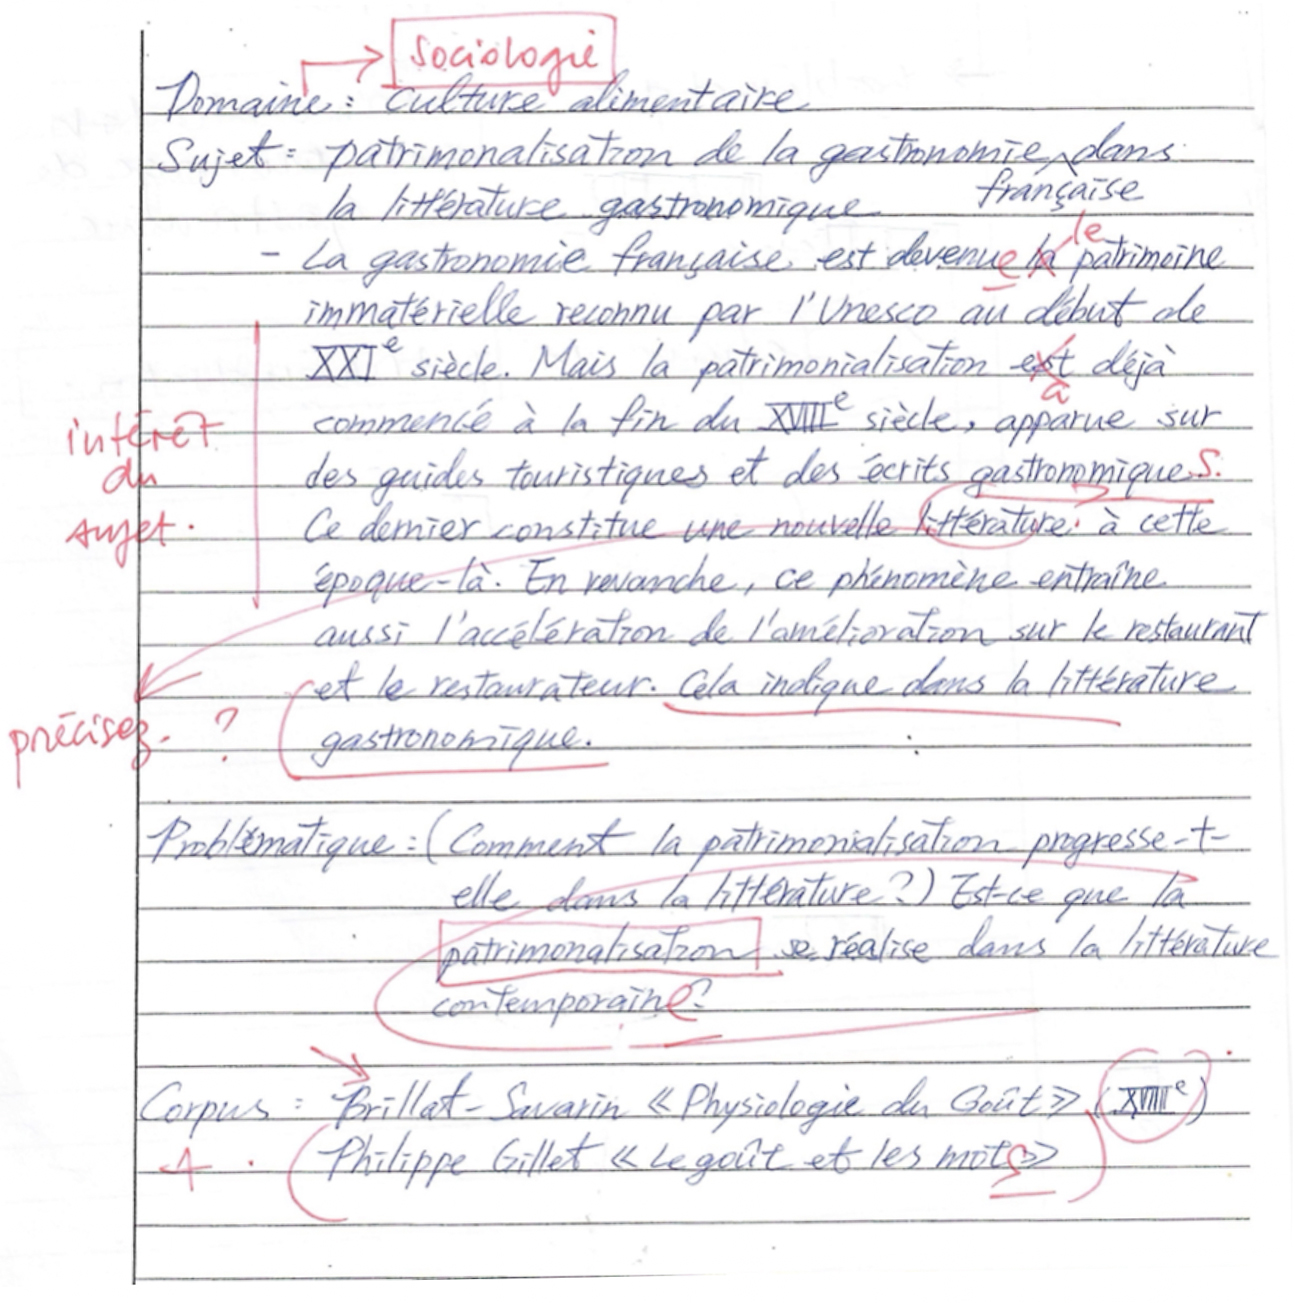 Sociologie
Domaine : culture alimentaire
Sujet : patrimonalisation de la gastronomie dans
française
la littérature gastronomique
le
- La gastronomie française est devenue la patrimoine
immatérielle reconnu par l'Unesco au début de
XXIe siècle. Mais la patrimonialisation est déjà
a
commencé à la fin du XVIIIe siècle, apparue sur
intérêt du sujet.
des guides touristiques et des écrits gastronomiques.
Ce dernier constitue une nouvelle littérature à cette
époque-là. En revanche, ce phénomène entraîne
aussi l'accélération de l'amélioration sur le restaurant
et le restaurateur. Cela indique dans la littérature
précisez. ?
gastronomique.
Problématique : (Comment la patrimonialisation progresse-t-
elle dans la littérature ?) Est-ce que la
patrimonalisation se réalise dans la littérature
contemporaine?
Corpus : Brillat-Savarin « Physiologie du Goût » (XVIIIe)
Philippe Gillet « Le goût et les mots »